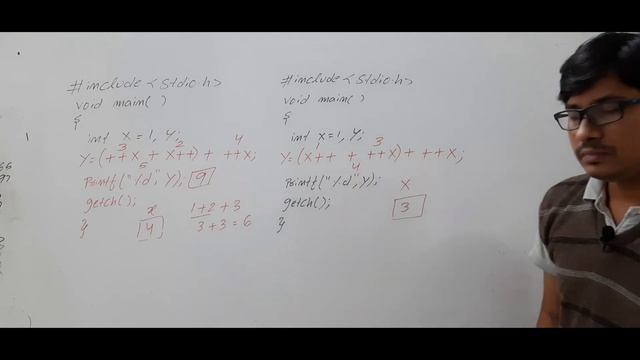 #include <Stdio.h>
void main( )
{
int x = 1, y;
3 2 4
y = (++x + x++) + ++x;
5
Printf("%d", y); 9
getch();
x 1+2+3
} 4 3+3=6
#include <Stdio.h>
void main( )
{
int x=1, y;
1 3
y = (x++ + ++x) + ++x;
4
Printf("%d", y); x
getch(); 3
}
1
66
97